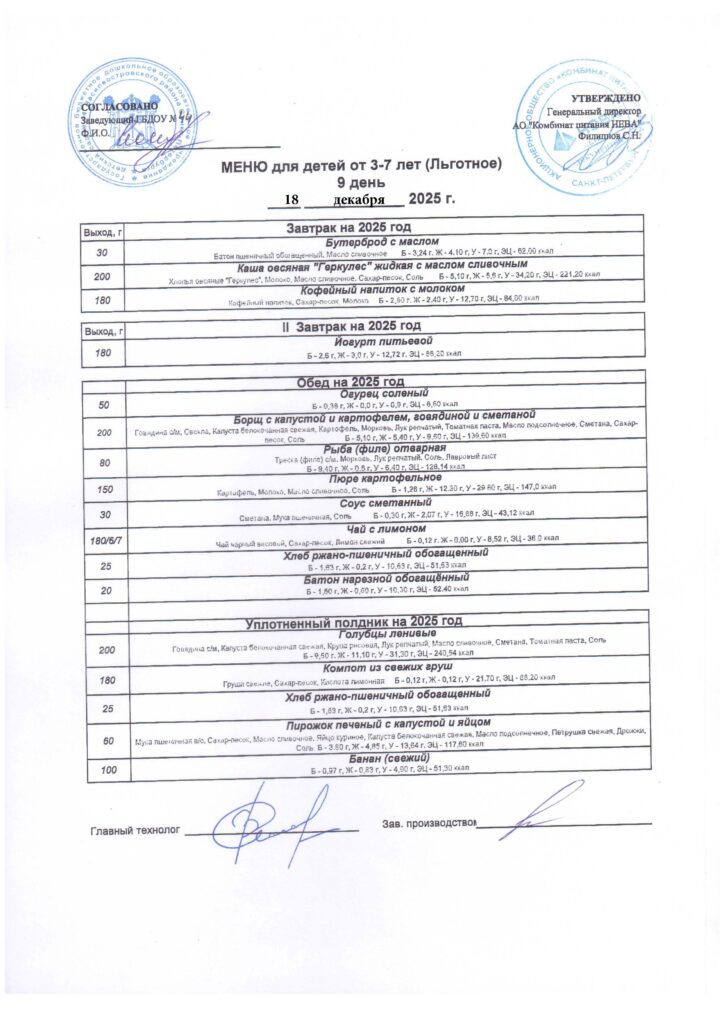 СОГЛАСОВАНО
Заведующий ГБДОУ № 44
Ф.И.О.
УТВЕРЖДЕНО
Генеральный директор
АО "Комбинат питания НЕВА"
Филиппов С.Н.
МЕНЮ для детей от 3-7 лет (Льготное)
9 день
18 декабря 2025 г.
Выход, г Завтрак на 2025 год
Бутерброд с маслом
30 Батон пшеничный обогащенный, Масло сливочное Б - 3,24 г, Ж - 4,10 г, У - 7,0 г, ЭЦ - 62,00 ккал
Каша овсяная "Геркулес" жидкая с маслом сливочным
200 Хлопья овсяные "Геркулес", Молоко, Масло сливочное, Сахар-песок, Соль Б - 5,10 г, Ж - 5,6 г, У - 34,20 г, ЭЦ - 221,20 ккал
Кофейный напиток с молоком
180 Кофейный напиток, Сахар-песок, Молоко Б - 2,60 г, Ж - 2,40 г, У - 12,70 г, ЭЦ - 84,00 ккал
Выход, г II Завтрак на 2025 год
Йогурт питьевой
180 Б - 2,6 г, Ж - 3,0 г, У - 12,72 г, ЭЦ - 88,20 ккал
Обед на 2025 год
Огурец соленый
50 Б - 0,38 г, Ж - 0,0 г, У - 0,9 г, ЭЦ - 6,50 ккал
Борщ с капустой и картофелем, говядиной и сметаной
200 Говядина с/м, Свекла, Капуста белокочанная свежая, Картофель, Морковь, Лук репчатый, Томатная паста, Масло подсолнечное, Сметана, Сахар-
песок, Соль Б - 5,10 г, Ж - 5,40 г, У - 9,60 г, ЭЦ - 139,60 ккал
Рыба (филе) отварная
80 Треска (филе) с/м, Морковь, Лук репчатый, Соль, Лавровый лист
Б - 9,40 г, Ж - 0,5 г, У - 6,40 г, ЭЦ - 126,14 ккал
Пюре картофельное
150 Картофель, Молоко, Масло сливочное, Соль Б - 1,26 г, Ж - 12,30 г, У - 29,60 г, ЭЦ - 147,0 ккал
Соус сметанный
30 Сметана, Мука пшеничная, Соль Б - 0,30 г, Ж - 2,07 г, У - 16,68 г, ЭЦ - 43,12 ккал
Чай с лимоном
180/6/7 Чай черный весовой, Сахар-песок, Лимон свежий Б - 0,12 г, Ж - 0,00 г, У - 8,52 г, ЭЦ - 36,0 ккал
Хлеб ржано-пшеничный обогащенный
25 Б - 1,63 г, Ж - 0,2 г, У - 10,63 г, ЭЦ - 51,63 ккал
Батон нарезной обогащённый
20 Б - 1,60 г, Ж - 0,60 г, У - 10,30 г, ЭЦ - 52,40 ккал
Уплотненный полдник на 2025 год
Голубцы ленивые
200 Говядина с/м, Капуста белокочанная свежая, Крупа рисовая, Лук репчатый, Масло сливочное, Сметана, Томатная паста, Соль
Б - 9,60 г, Ж - 11,10 г, У - 31,30 г, ЭЦ - 240,54 ккал
Компот из свежих груш
180 Груши свежие, Сахар-песок, Кислота лимонная Б - 0,12 г, Ж - 0,12 г, У - 21,70 г, ЭЦ - 88,20 ккал
Хлеб ржано-пшеничный обогащенный
25 Б - 1,63 г, Ж - 0,2 г, У - 10,63 г, ЭЦ - 51,63 ккал
Пирожок печеный с капустой и яйцом
60 Мука пшеничная в/с, Сахар-песок, Масло сливочное, Яйцо куриное, Капуста белокочанная свежая, Масло подсолнечное, Петрушка свежая, Дрожжи,
Соль Б - 3,80 г, Ж - 4,85 г, У - 13,64 г, ЭЦ - 117,60 ккал
Банан (свежий)
100 Б - 0,97 г, Ж - 0,83 г, У - 4,90 г, ЭЦ - 51,30 ккал
Главный технолог Зав. производством